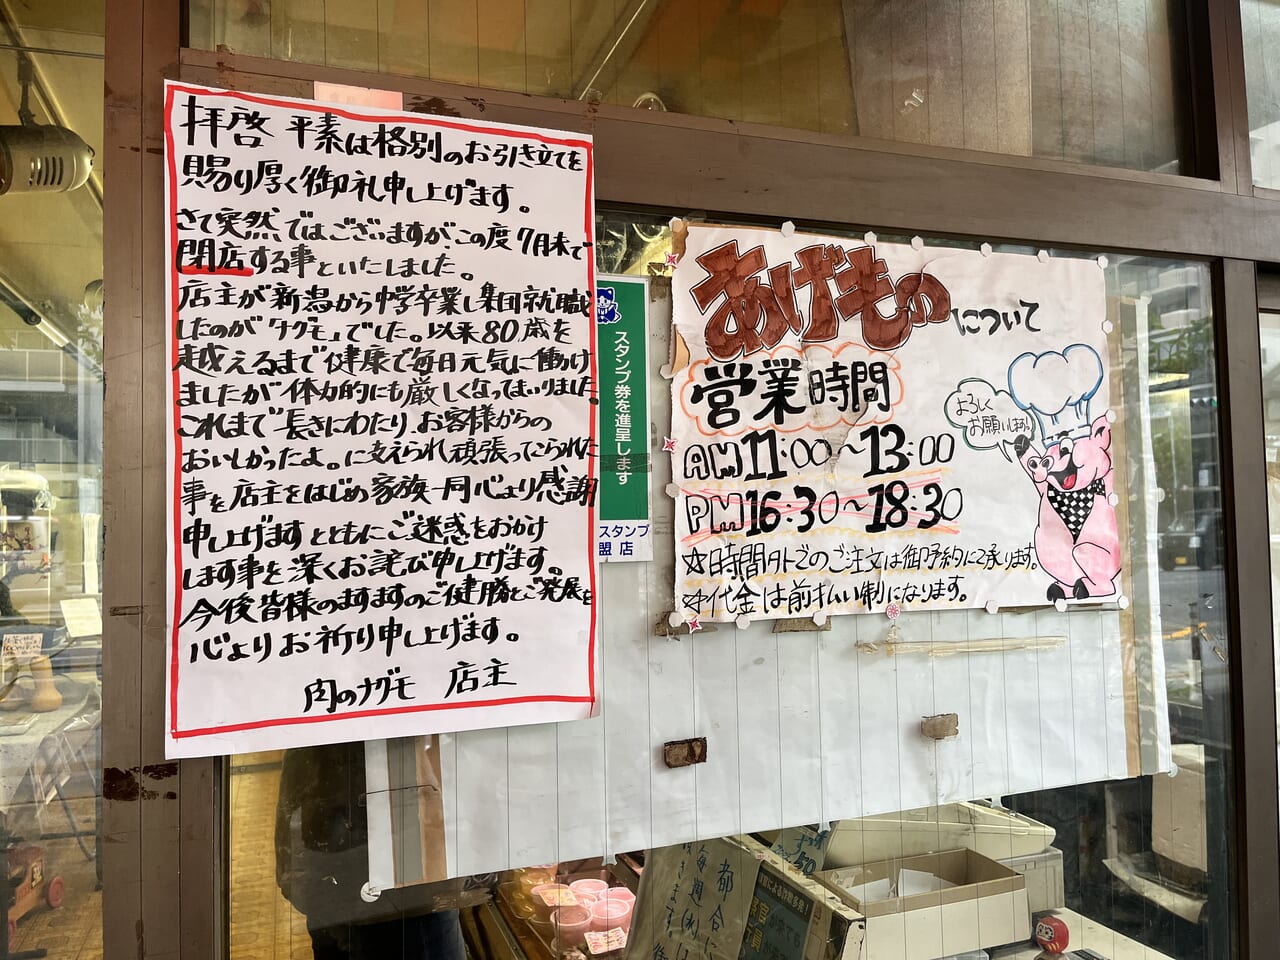 拝啓 平素は格別のお引き立てを
賜り厚く御礼申し上げます。
さて突然ではございますが、この度7月末で
閉店する事といたしました。
店主が新潟から中学卒業し集団就職
したのが「ナグモ」でした。以来80歳を
越えるまで健康で毎日元気に働け
ましたが体力的にも厳しくなってまいりました。
これまで長きにわたり、お客様からの
おいしかったよ。に支えられ頑張ってこられた
事を店主をはじめ家族一同心より感謝
申し上げますとともにご迷惑をおかけ
します事を深くお詫び申し上げます。
今後皆様のますますのご健勝とご発展を
心よりお祈り申し上げます。
肉のナグモ 店主
スタンプ券を進呈します
スタンプ
盟店
あげものについて
営業時間
AM11:00~13:00
PM16:30~18:30
よろしく
お願いします
☆時間外でのご注文は御予約にて承ります。
☆代金は前払い制になります。
都合に
毎週(水)は